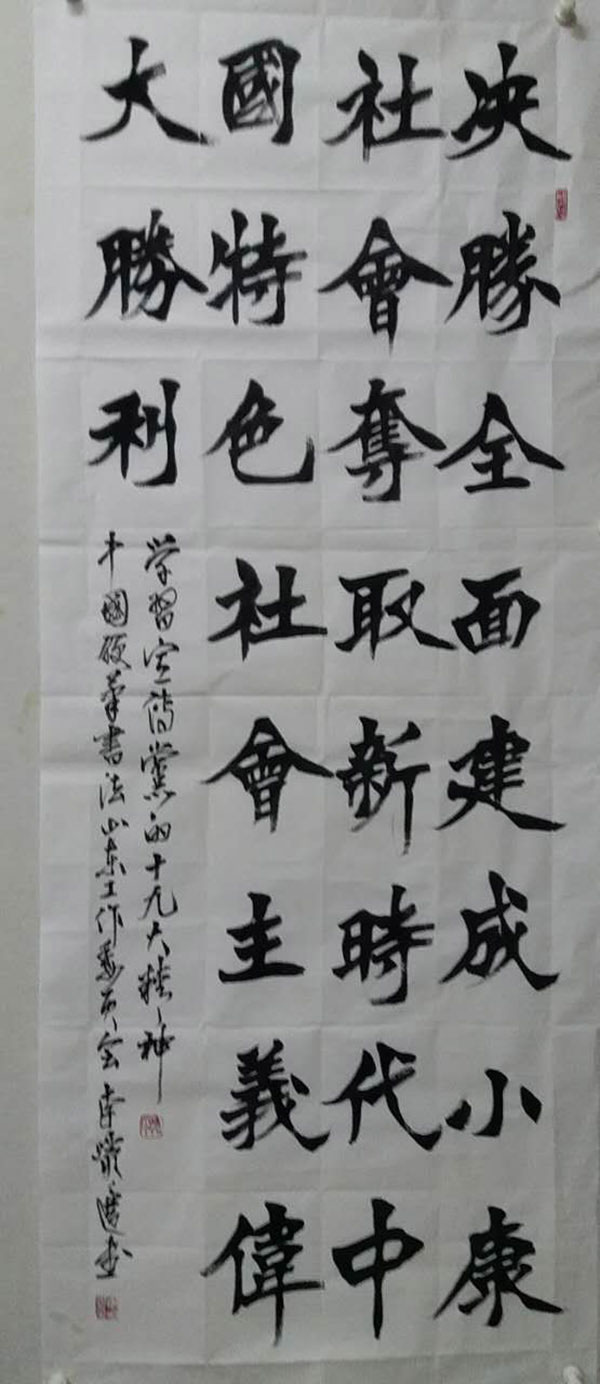 决勝全面建成小康
社會奪取新時代中
國特色社會主義偉
大勝利
学習宣傳黨的十九大精神
中國硬筆書法山东工作委員会